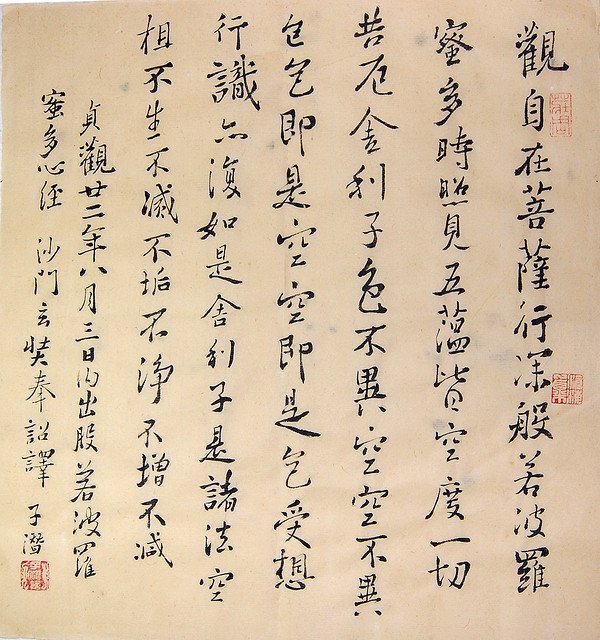 觀自在菩薩行深般若波羅
蜜多時照見五蘊皆空度一切
苦厄舍利子色不異空空不異
色色即是空空即是色受想
行識亦復如是舍利子是諸法空
相不生不滅不垢不淨不增不減
貞觀廿二年八月三日內出般若波羅
蜜多心經 沙門玄奘奉詔譯 子潛